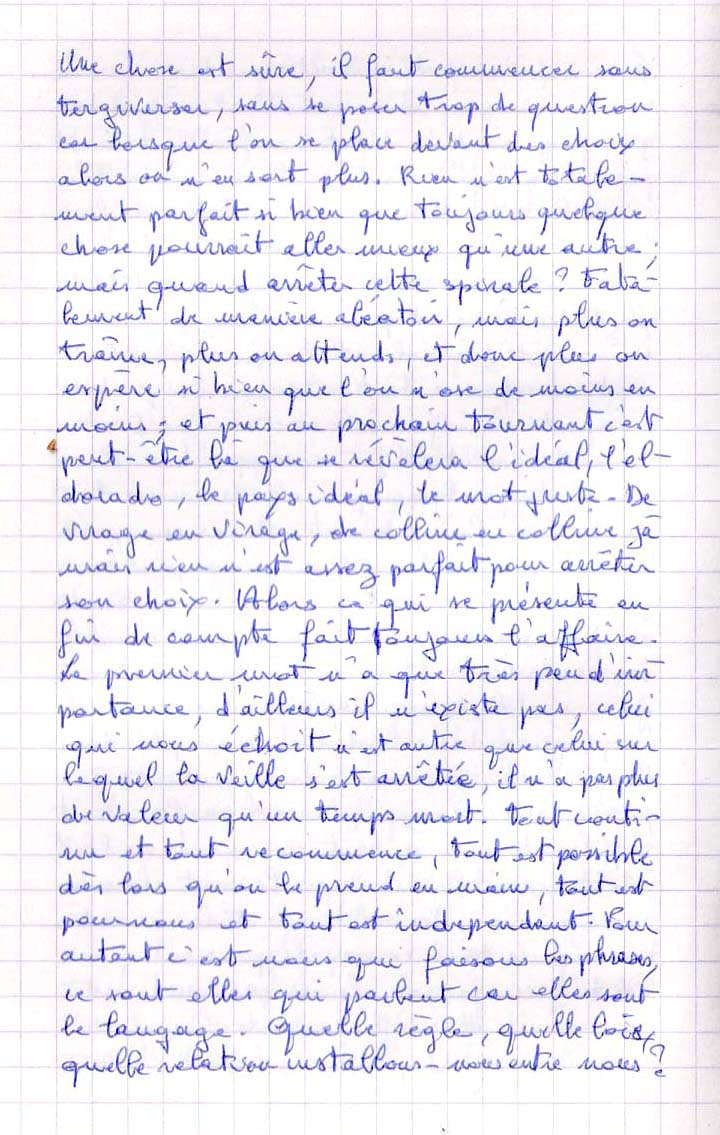 Une chose est sûre, il faut commencer sans
tergiverser, sans se poser trop de question
car lorsque l'on se place devant des choix
alors on n'en sort plus. Rien n'est totale-
ment parfait si bien que toujours quelque
chose pourrait aller mieux qu'une autre ;
mais quand arrêter cette spirale ? Fata-
lement de manière aléatoir, mais plus on
traîne, plus on attends, et donc plus on
espère si bien que l'on n'ose de moins en
moins ; et puis au prochain tournant c'est
peut-être là que se révèlera l'idéal, l'el-
dorado, le pays idéal, le mot juste. De
virage en virage, de colline en colline ja
mais rien n'est assez parfait pour arrêter
son choix. Alors ce qui se présente en
fin de compte fait toujours l'affaire.
Le premier mot n'a que très peu d'im
portance, d'ailleurs il n'existe pas, celui
qui nous échoit n'est autre que celui sur
lequel la veille s'est arrêtée, il n'a pas plus
de valeur qu'un temps mort. Tout conti-
nu et tout recommence, tout est possible
dès lors qu'on le prend en main, tout est
pour nous et tout est independant. Pour
autant c'est nous qui faisons les phrases,
ce sont elles qui parlent car elles sont
le langage. Quelle règle, quelle lois,
quelle relation installons-nous entre nous ?